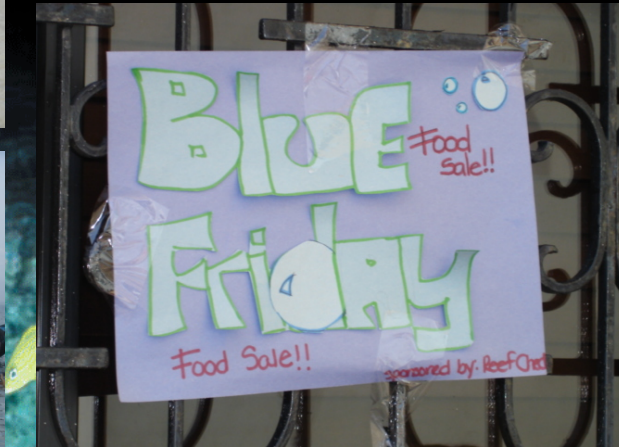 Blue
Food
Sale!!
Friday
Food Sale!!
sponsored by: Reef Check